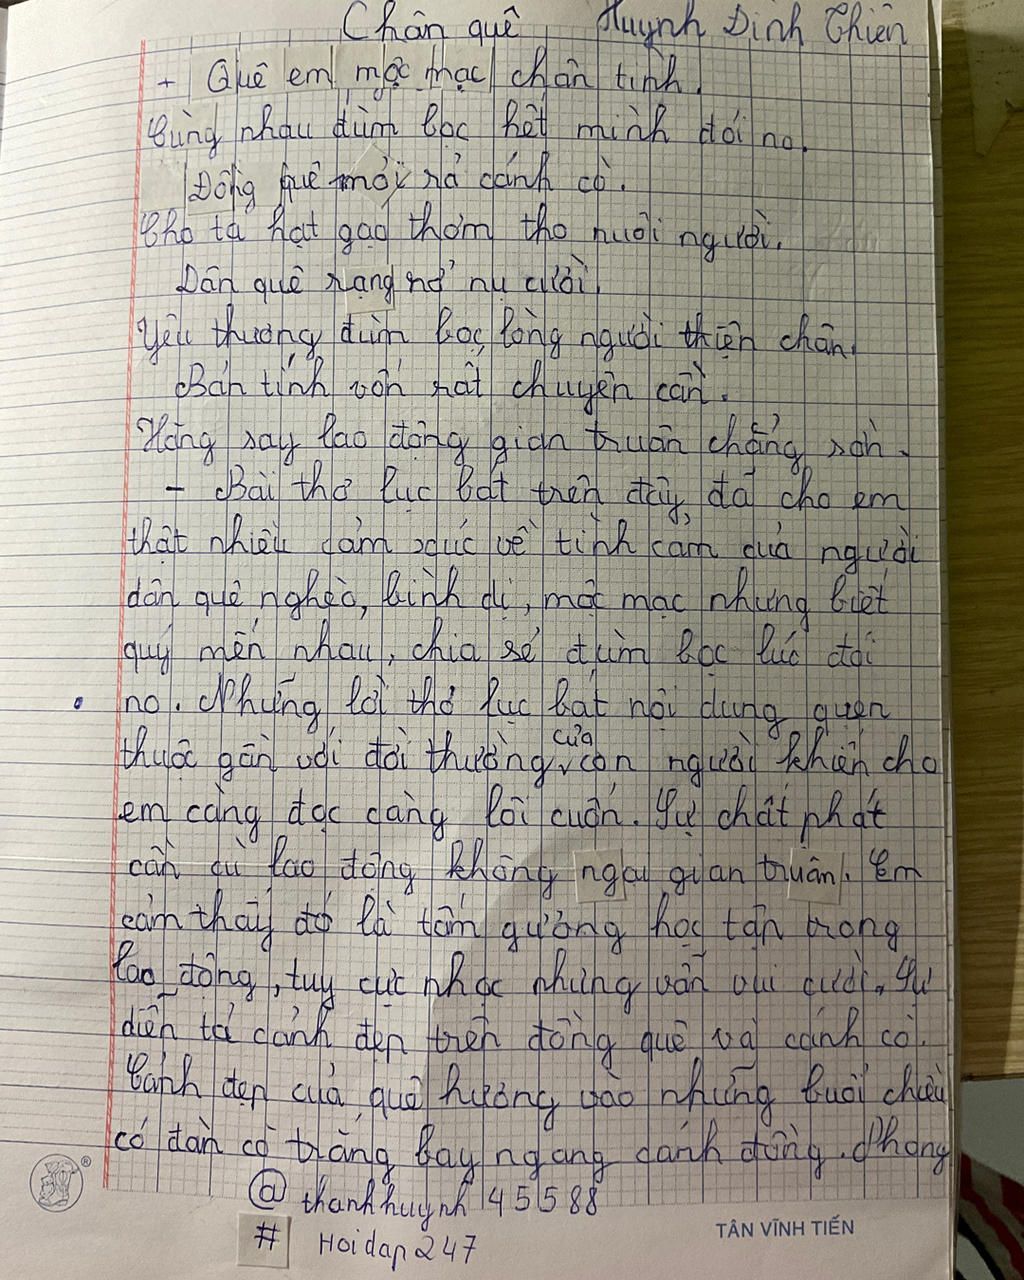 Chân quê Huỳnh Đình Chiến
+ Quê em mộc mạc chân tình.
Cùng nhau đùm bọc hết mình đói no.
Đồng quê mỏi rả cánh cò.
Cho ta hạt gạo thơm tho nuôi người.
Dân quê rạng nở nụ cười.
Yêu thương đùm bọc lòng người thiện chân.
Bản tính vốn rất chuyên cần.
Hăng say lao động gian truân chẳng sờn.
- Bài thơ lục bát trên đây, đã cho em
thật nhiều cảm xúc về tình cảm của người
dân quê nghèo, bình dị, mộc mạc nhưng biết
quý mến nhau, chia sẻ đùm bọc lúc đói
no. Những lời thơ lục bát nội dung quen
thuộc gần với đời thường của con người khiến cho
em càng đọc càng lôi cuốn. Sự chất phát
cần cù lao động không ngại gian truân. Em
cảm thấy đó là tấm gương học tập trong
lao động, tuy cực nhọc nhưng vẫn vui cười. Sự
diễn tả cảnh đẹp trên đồng quê và cánh cò.
Cảnh đẹp của quê hương vào những buổi chiều
có đàn cò trắng bay ngang cánh đồng. Phong
@ thanhhuynh 45588
# Hoidap247
TÂN VĨNH TIẾN